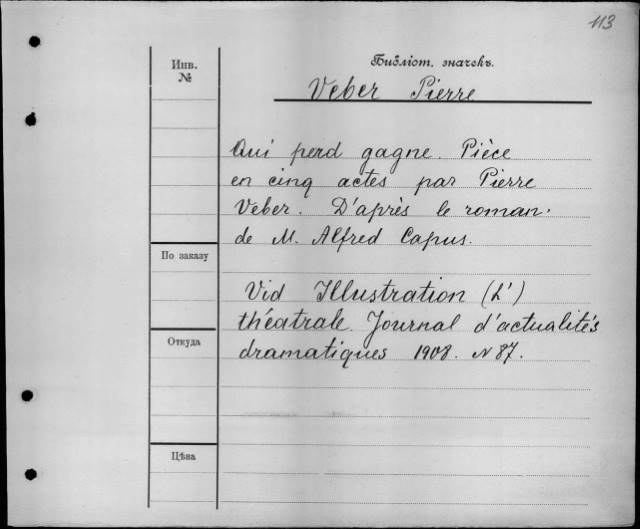 113
Инв.
№
Библіот. значекъ.
Veber Pierre
Qui perd gagne. Pièce
en cinq actes par Pierre
Veber. D'après le roman.
de M. Alfred Capus.
По заказу
Vid Illustration (L')
théatrale. Journal d'actualités
Откуда
dramatiques 1908. N 87.
Цѣна